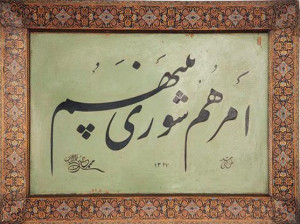 امرهم شوری بینهم
۱۳۱۷